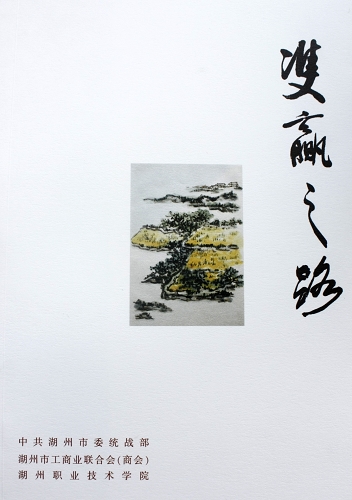 雙贏之路
中共湖州市委统战部
湖州市工商业联合会(商会)
湖州职业技术学院